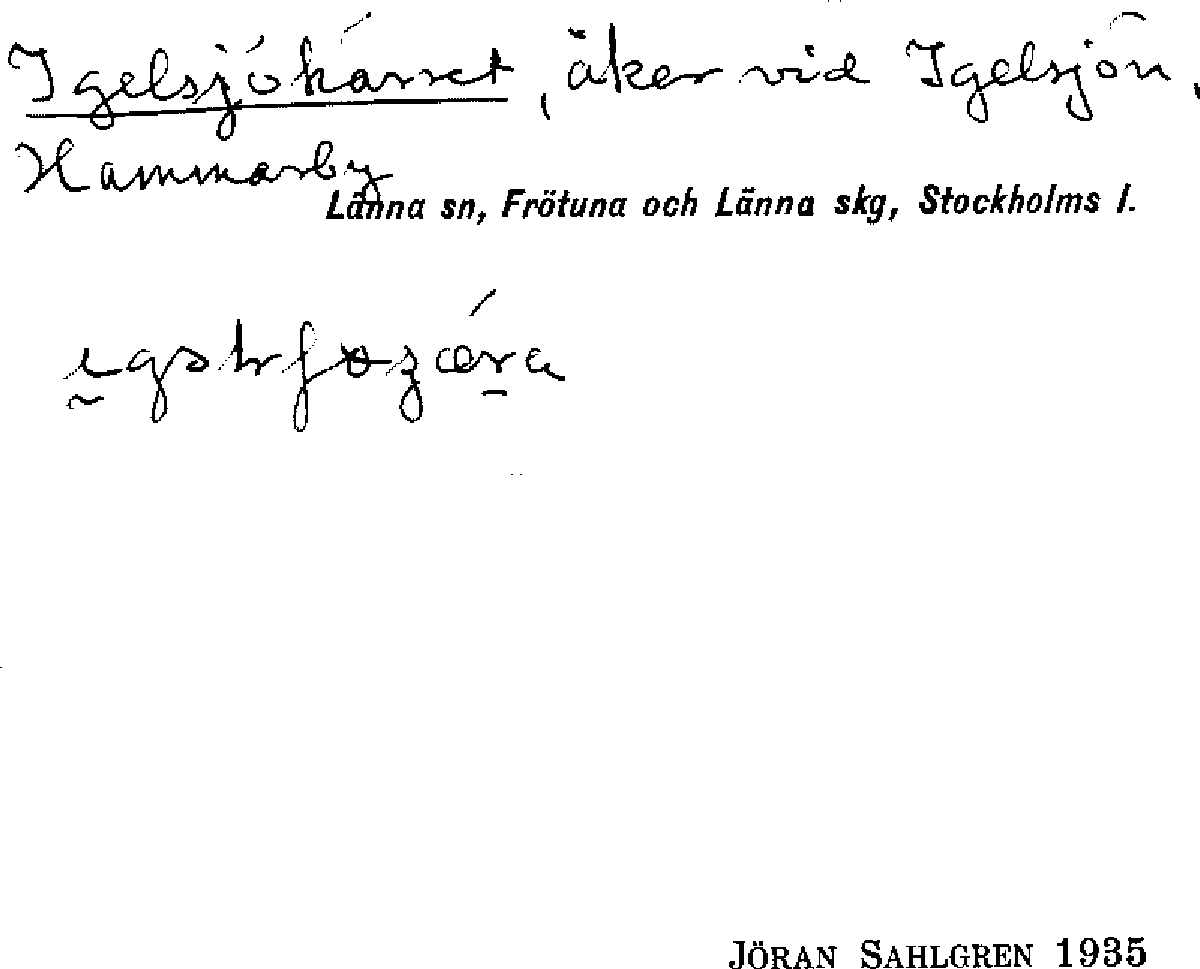 Igelsjökärret, åker vid Igelsjön,
Hammarby
Länna sn, Frötuna och Länna skg, Stockholms l.
JÖRAN SAHLGREN 1935